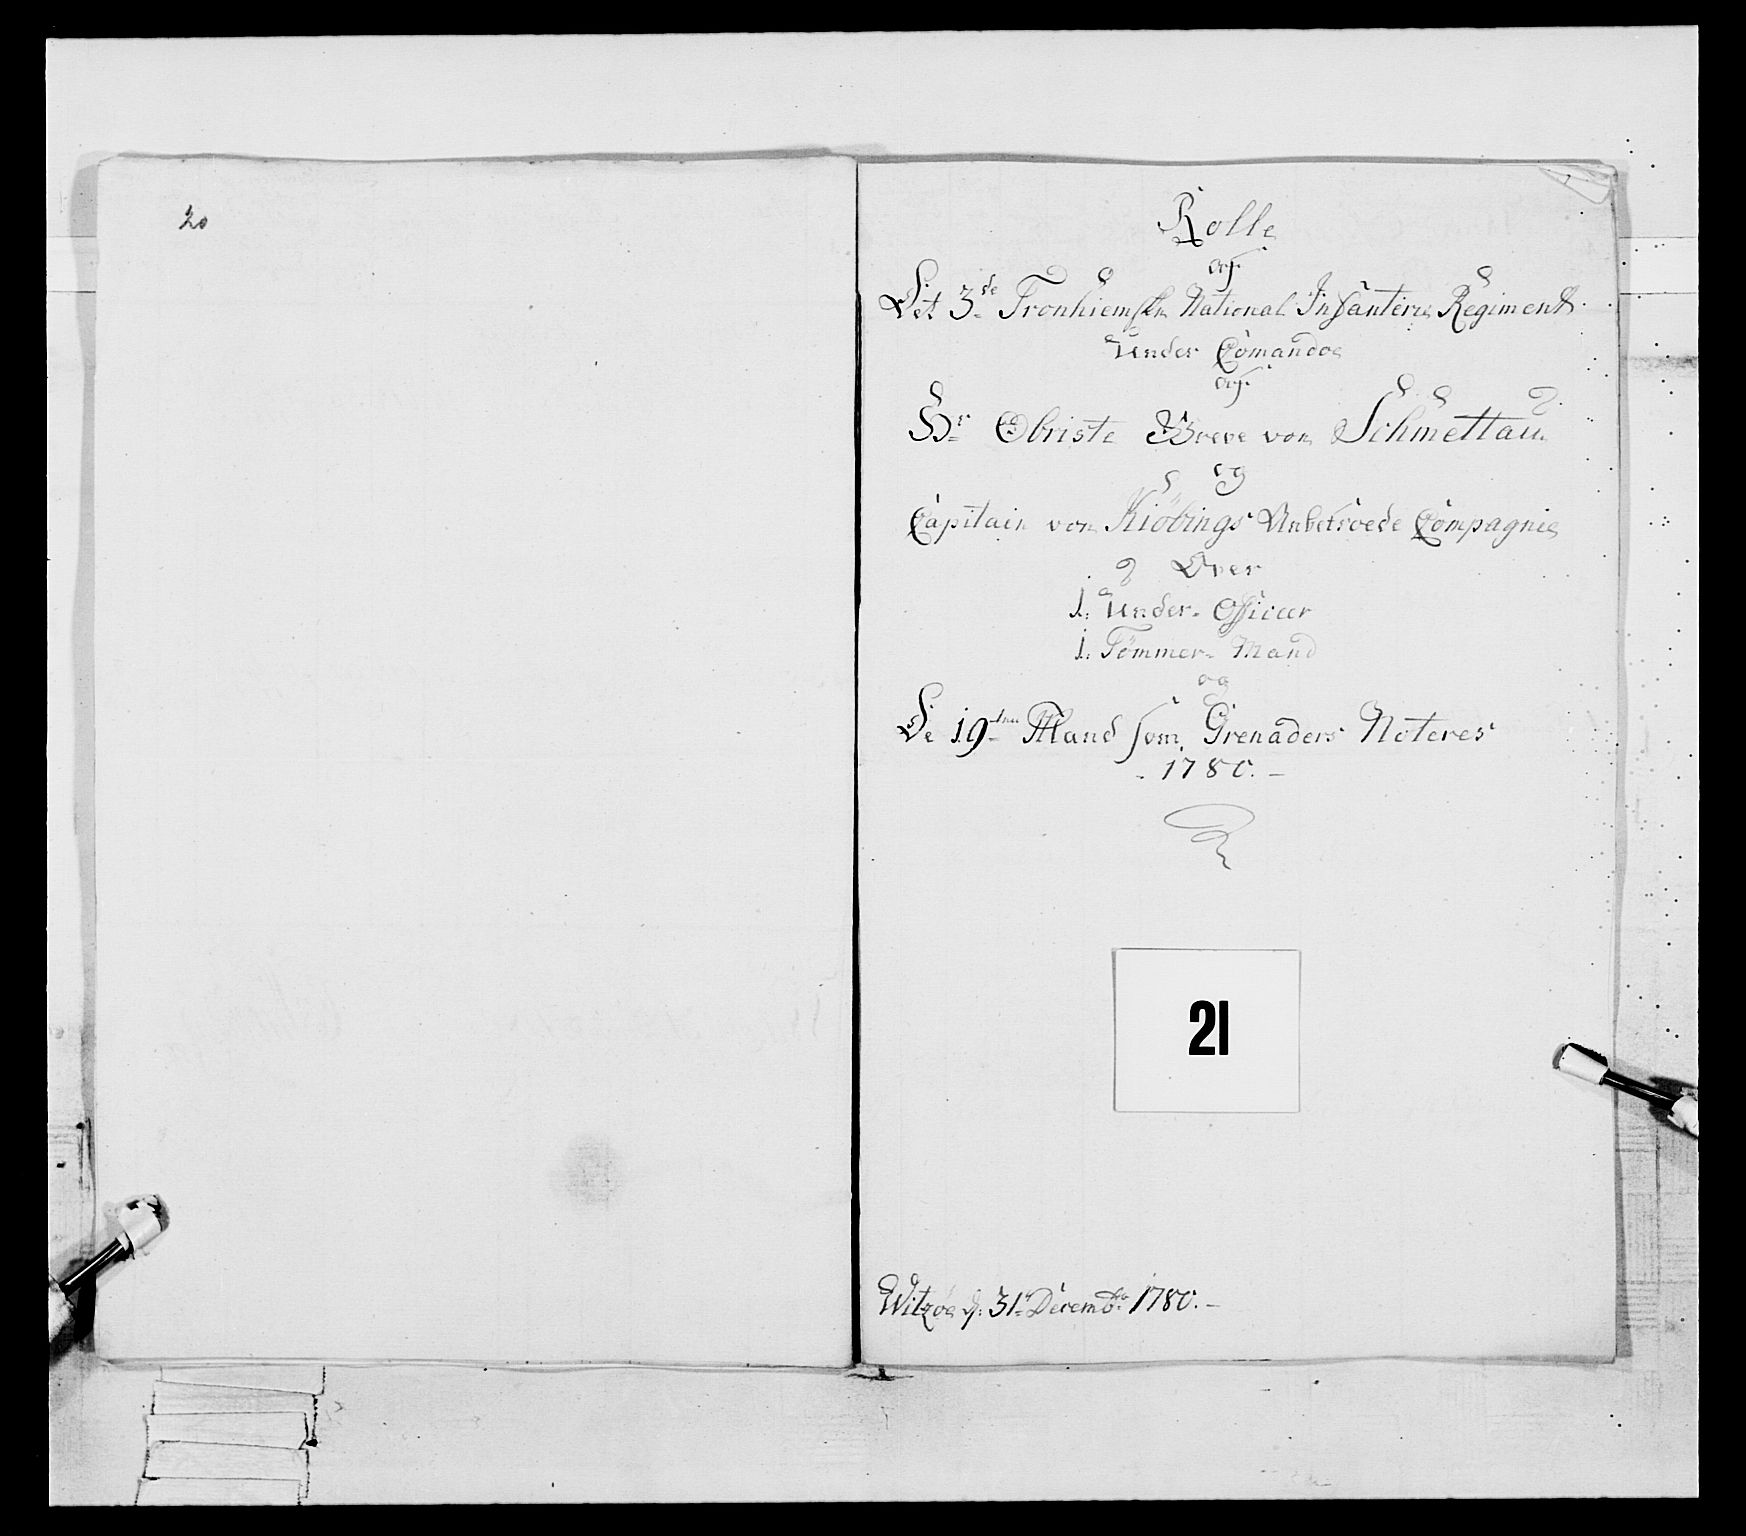 20
Rolle
af
Det 3de Tronhiemske National Infanterie Regiment
Under Comando
af
Hr Obriste Greve von Schmettau
og
Capitain von Kiöbings Anbetroede Compagnie
Over
1. Under-Officer
1. Tömmer-Mand
og
De 19 Mand som Grenaders Noteres
1780.
21
Witzøe d: 31te Decembr 1780.